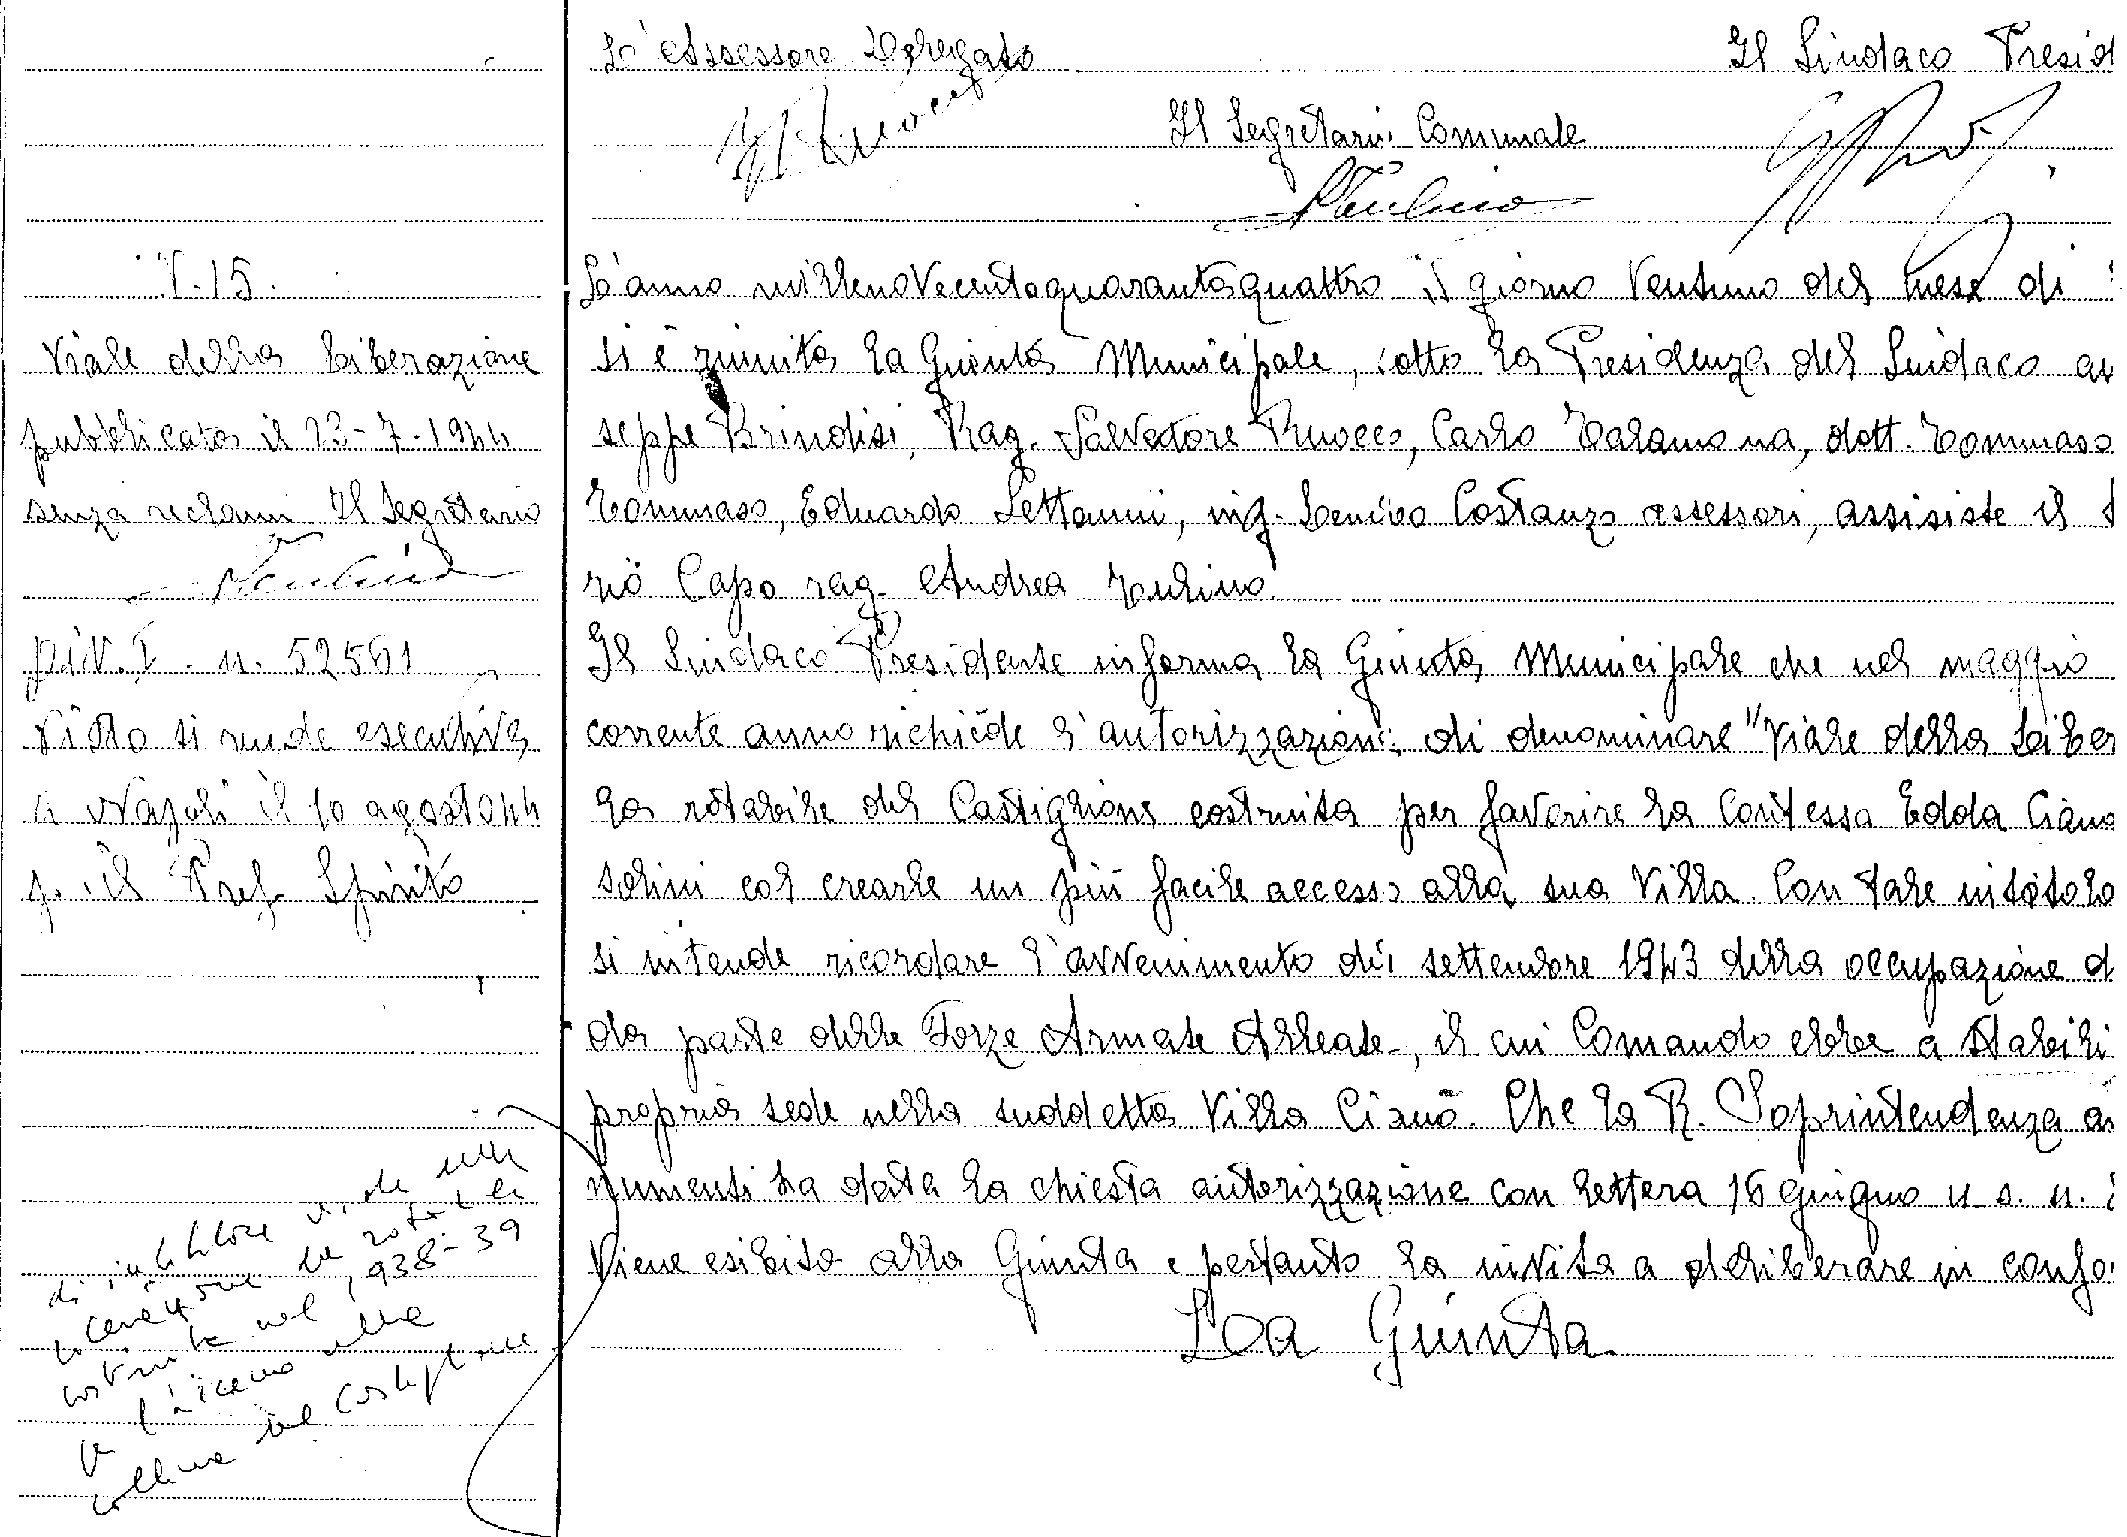 L'Assessore Delegato
Il Sindaco Presid
Il Segretario Comunale
N. 15.
Viale della Liberazione
pubblicata il 23-7-1944
senza reclami Il Segretario
Div. I n. 52561
Visto si rende esecutiva
Napoli il 10 agosto 44
p. il Pref. Spirito
L'anno millenovecentoquarantaquattro il giorno Ventuno del mese di
si è riunita la Giunta Municipale, sotto la Presidenza del Sindaco av
seppe Brindisi, Rag. Salvatore Ruocco, Carlo Talamona, dott. Tommaso
Tommaso, Eduardo Settanni, ing. Costanzo assessori, assisiste il S
rio Capo rag. Andrea Tulino.
Il Sindaco Presidente informa la Giunta Municipale che nel maggio
corrente anno richiede l'autorizzazione di denominare "Viale della Liber
la rotabile del Castiglione costruita per favorire la Contessa Edda Ciano
solini col crearle un più facile accesso alla sua Villa. Con tale intitola
si intende ricordare l'avvenimento del settembre 1943 della occupazione d
da parte delle Forze Armate Alleate, il cui Comando ebbe a stabili
propria sede nella suddetta Villa Ciano. Che la R. Soprintendenza ai
numenti ha data la chiesta autorizzazione con lettera 16 giugno u. s. n.
Viene esibita alla Giunta e pertanto la invita a deliberare in confor
La Giunta
di intitolare viale della
Liberazione la rotabile
costruita nel 1938-39
collina del Castiglione